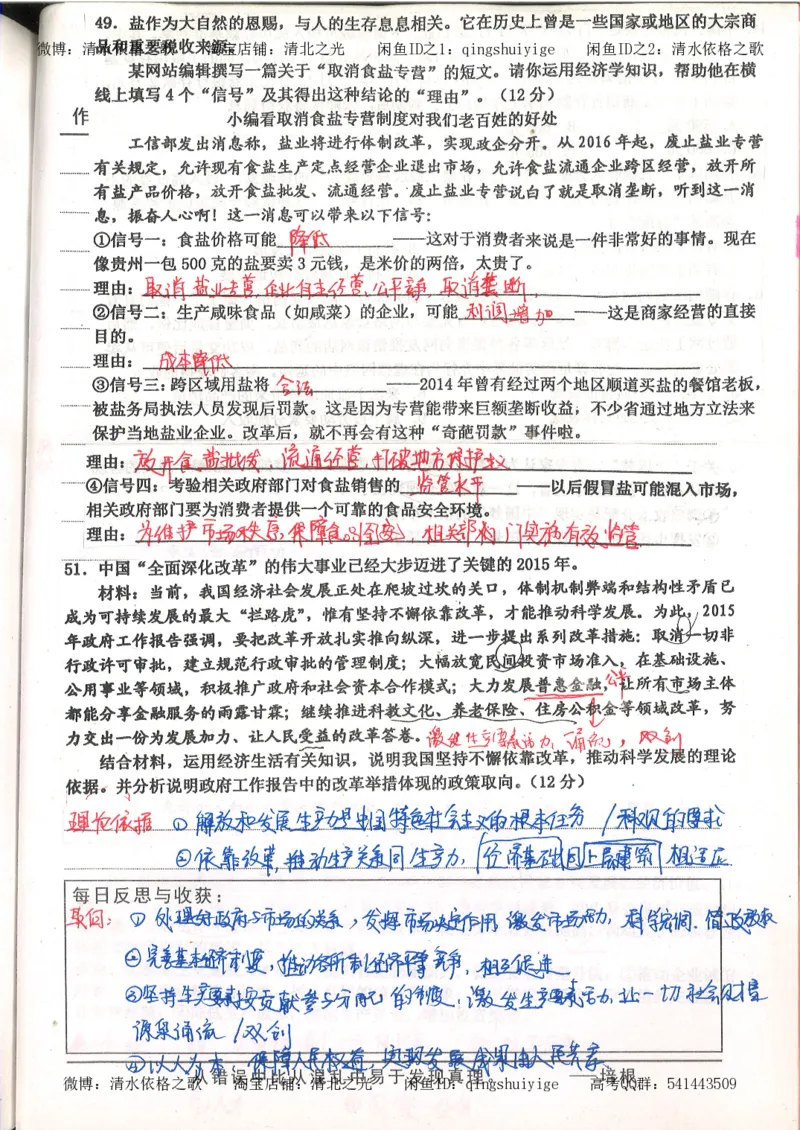 49．盐作为大自然的恩赐，与人的生存息息相关。它在历史上曾是一些国家或地区的大宗商
品和重要税收来源。
微博：清水依格之歌 淘宝店铺：清北之光 闲鱼ID之1：qingshuiyige 闲鱼ID之2：清水依格之歌
某网站编辑撰写一篇关于“取消食盐专营”的短文。请你运用经济学知识，帮助他在横
线上填写4个“信号”及其得出这种结论的“理由”。（12分）
作
小编看取消食盐专营制度对我们老百姓的好处
工信部发出消息称，盐业将进行体制改革，实现政企分开。从2016年起，废止盐业专营
有关规定，允许现有食盐生产定点经营企业退出市场，允许食盐流通企业跨区经营，放开所
有盐产品价格，放开食盐批发、流通经营。废止盐业专营说白了就是取消垄断，听到这一消
息，振奋人心啊！这一消息可以带来以下信号：
①信号一：食盐价格可能 降低 ——这对于消费者来说是一件非常好的事情。现在
像贵州一包500克的盐要卖3元钱，是米价的两倍，太贵了。
理由：取消盐业专营，企业自主经营、公平竞争，取消垄断，
②信号二：生产咸味食品（如咸菜）的企业，可能 利润增加 ——这是商家经营的直接
目的。
理由： 成本降低
③信号三：跨区域用盐将 合法 ——2014年曾有经过两个地区顺道买盐的餐馆老板，
被盐务局执法人员发现后罚款。这是因为专营能带来巨额垄断收益，不少省通过地方立法来
保护当地盐业企业。改革后，就不再会有这种“奇葩罚款”事件啦。
理由：放开食盐批发、流通经营，打破地方保护主义
④信号四：考验相关政府部门对食盐销售的 监管水平 ——以后假冒盐可能混入市场，
相关政府部门要为消费者提供一个可靠的食品安全环境。
理由：为维护市场秩序，保障食品安全，相关部门实施有效监管
51．中国“全面深化改革”的伟大事业已经大步迈进了关键的2015年。
材料：当前，我国经济社会发展正处在爬坡过坎的关口，体制机制弊端和结构性矛盾已
成为可持续发展的最大“拦路虎”，惟有坚持不懈依靠改革，才能推动科学发展。为此，2015
年政府工作报告强调，要把改革开放扎实推向纵深，进一步提出系列改革措施：取消一切非
行政许可审批，建立规范行政审批的管理制度；大幅放宽民间投资市场准入，在基础设施、
公用事业等领域，积极推广政府和社会资本合作模式；大力发展普惠金融，让所有市场主体
公平
都能分享金融服务的雨露甘霖；继续推进科教文化、养老保险、住房公积金等领域改革，努
力交出一份为发展加力、让人民受益的改革答卷。
激发生产要素活力，涌流，双创
结合材料，运用经济生活有关知识，说明我国坚持不懈依靠改革，推动科学发展的理论
依据。并分析说明政府工作报告中的改革举措体现的政策取向。（12分）
理论依据 ①解放和发展生产力是中国特色社会主义的根本任务 /科观的要求
②依靠改革，推动生产关系同生产力，经济基础同上层建筑相适应
每日反思与收获：
取向：①处理好政府与市场的关系，发挥市场决定作用，激发市场活力，科学宏调.简政放权
②完善基本经济制度，推动各所有制经济平等竞争，相互促进
③坚持生产要素按贡献参与分配的制度，激发生产要素活力，让一切社会财富
源泉涌流 /双创
④以人为本，保障人民权益，实现发展成果由人民共享
从错误中比从混乱中易于发现真理 ——培根
微博：清水依格之歌 淘宝店铺：清北之光 闲鱼ID：qingshuiyige 高考QQ群：541443509